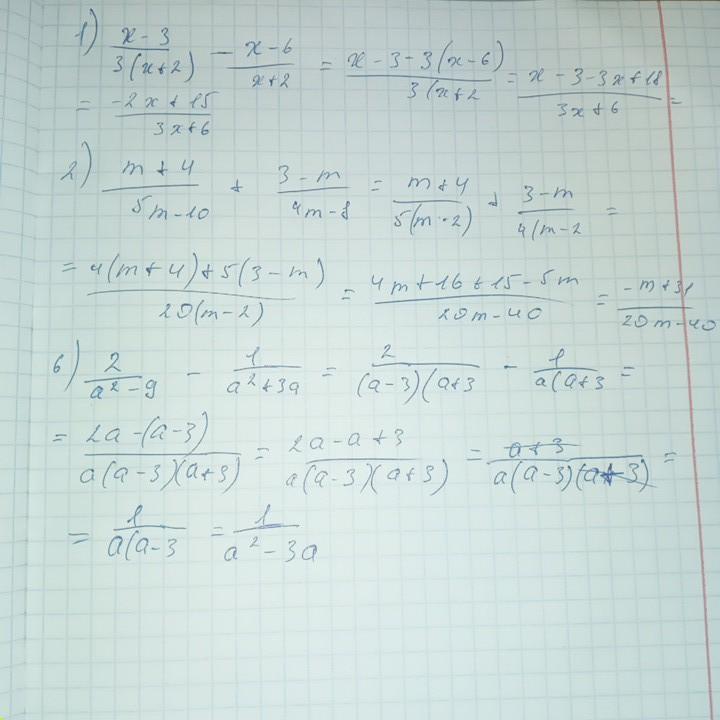 1) (x-3)/(3(x+2)) - (x-6)/(x+2) = (x-3-3(x-6))/(3(x+2) = (x-3-3x+18)/(3x+6) =
= (-2x+15)/(3x+6)
2) (m+4)/(5m-10) + (3-m)/(4m-8) = (m+4)/(5(m-2)) + (3-m)/(4(m-2) =
= (4(m+4)+5(3-m))/(20(m-2)) = (4m+16+15-5m)/(20m-40) = (-m+31)/(20m-40)
6) 2/(a²-9) - 1/(a²+3a) = 2/((a-3)(a+3) - 1/(a(a+3) =
= (2a-(a-3))/(a(a-3)(a+3)) = (2a-a+3)/(a(a-3)(a+3)) = (a+3)/(a(a-3)(a+3)) =
= 1/(a(a-3) = 1/(a²-3a)